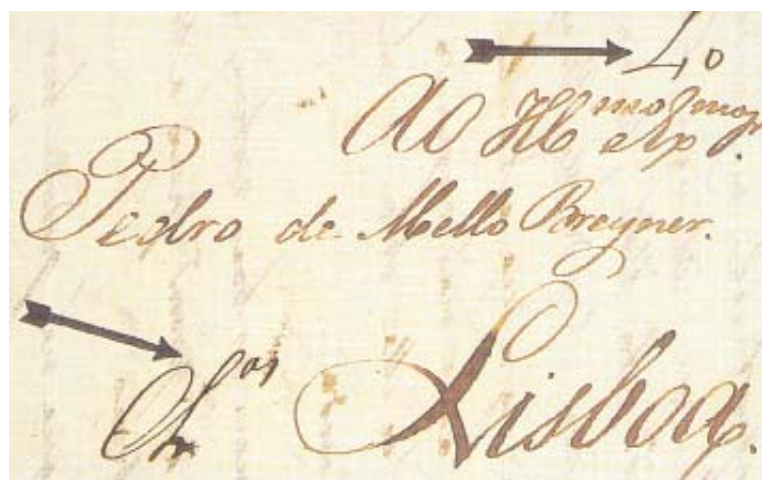 40
Ao Illmo e Exmo Sr.
Pedro de Mello Breyner.
Lisboa.